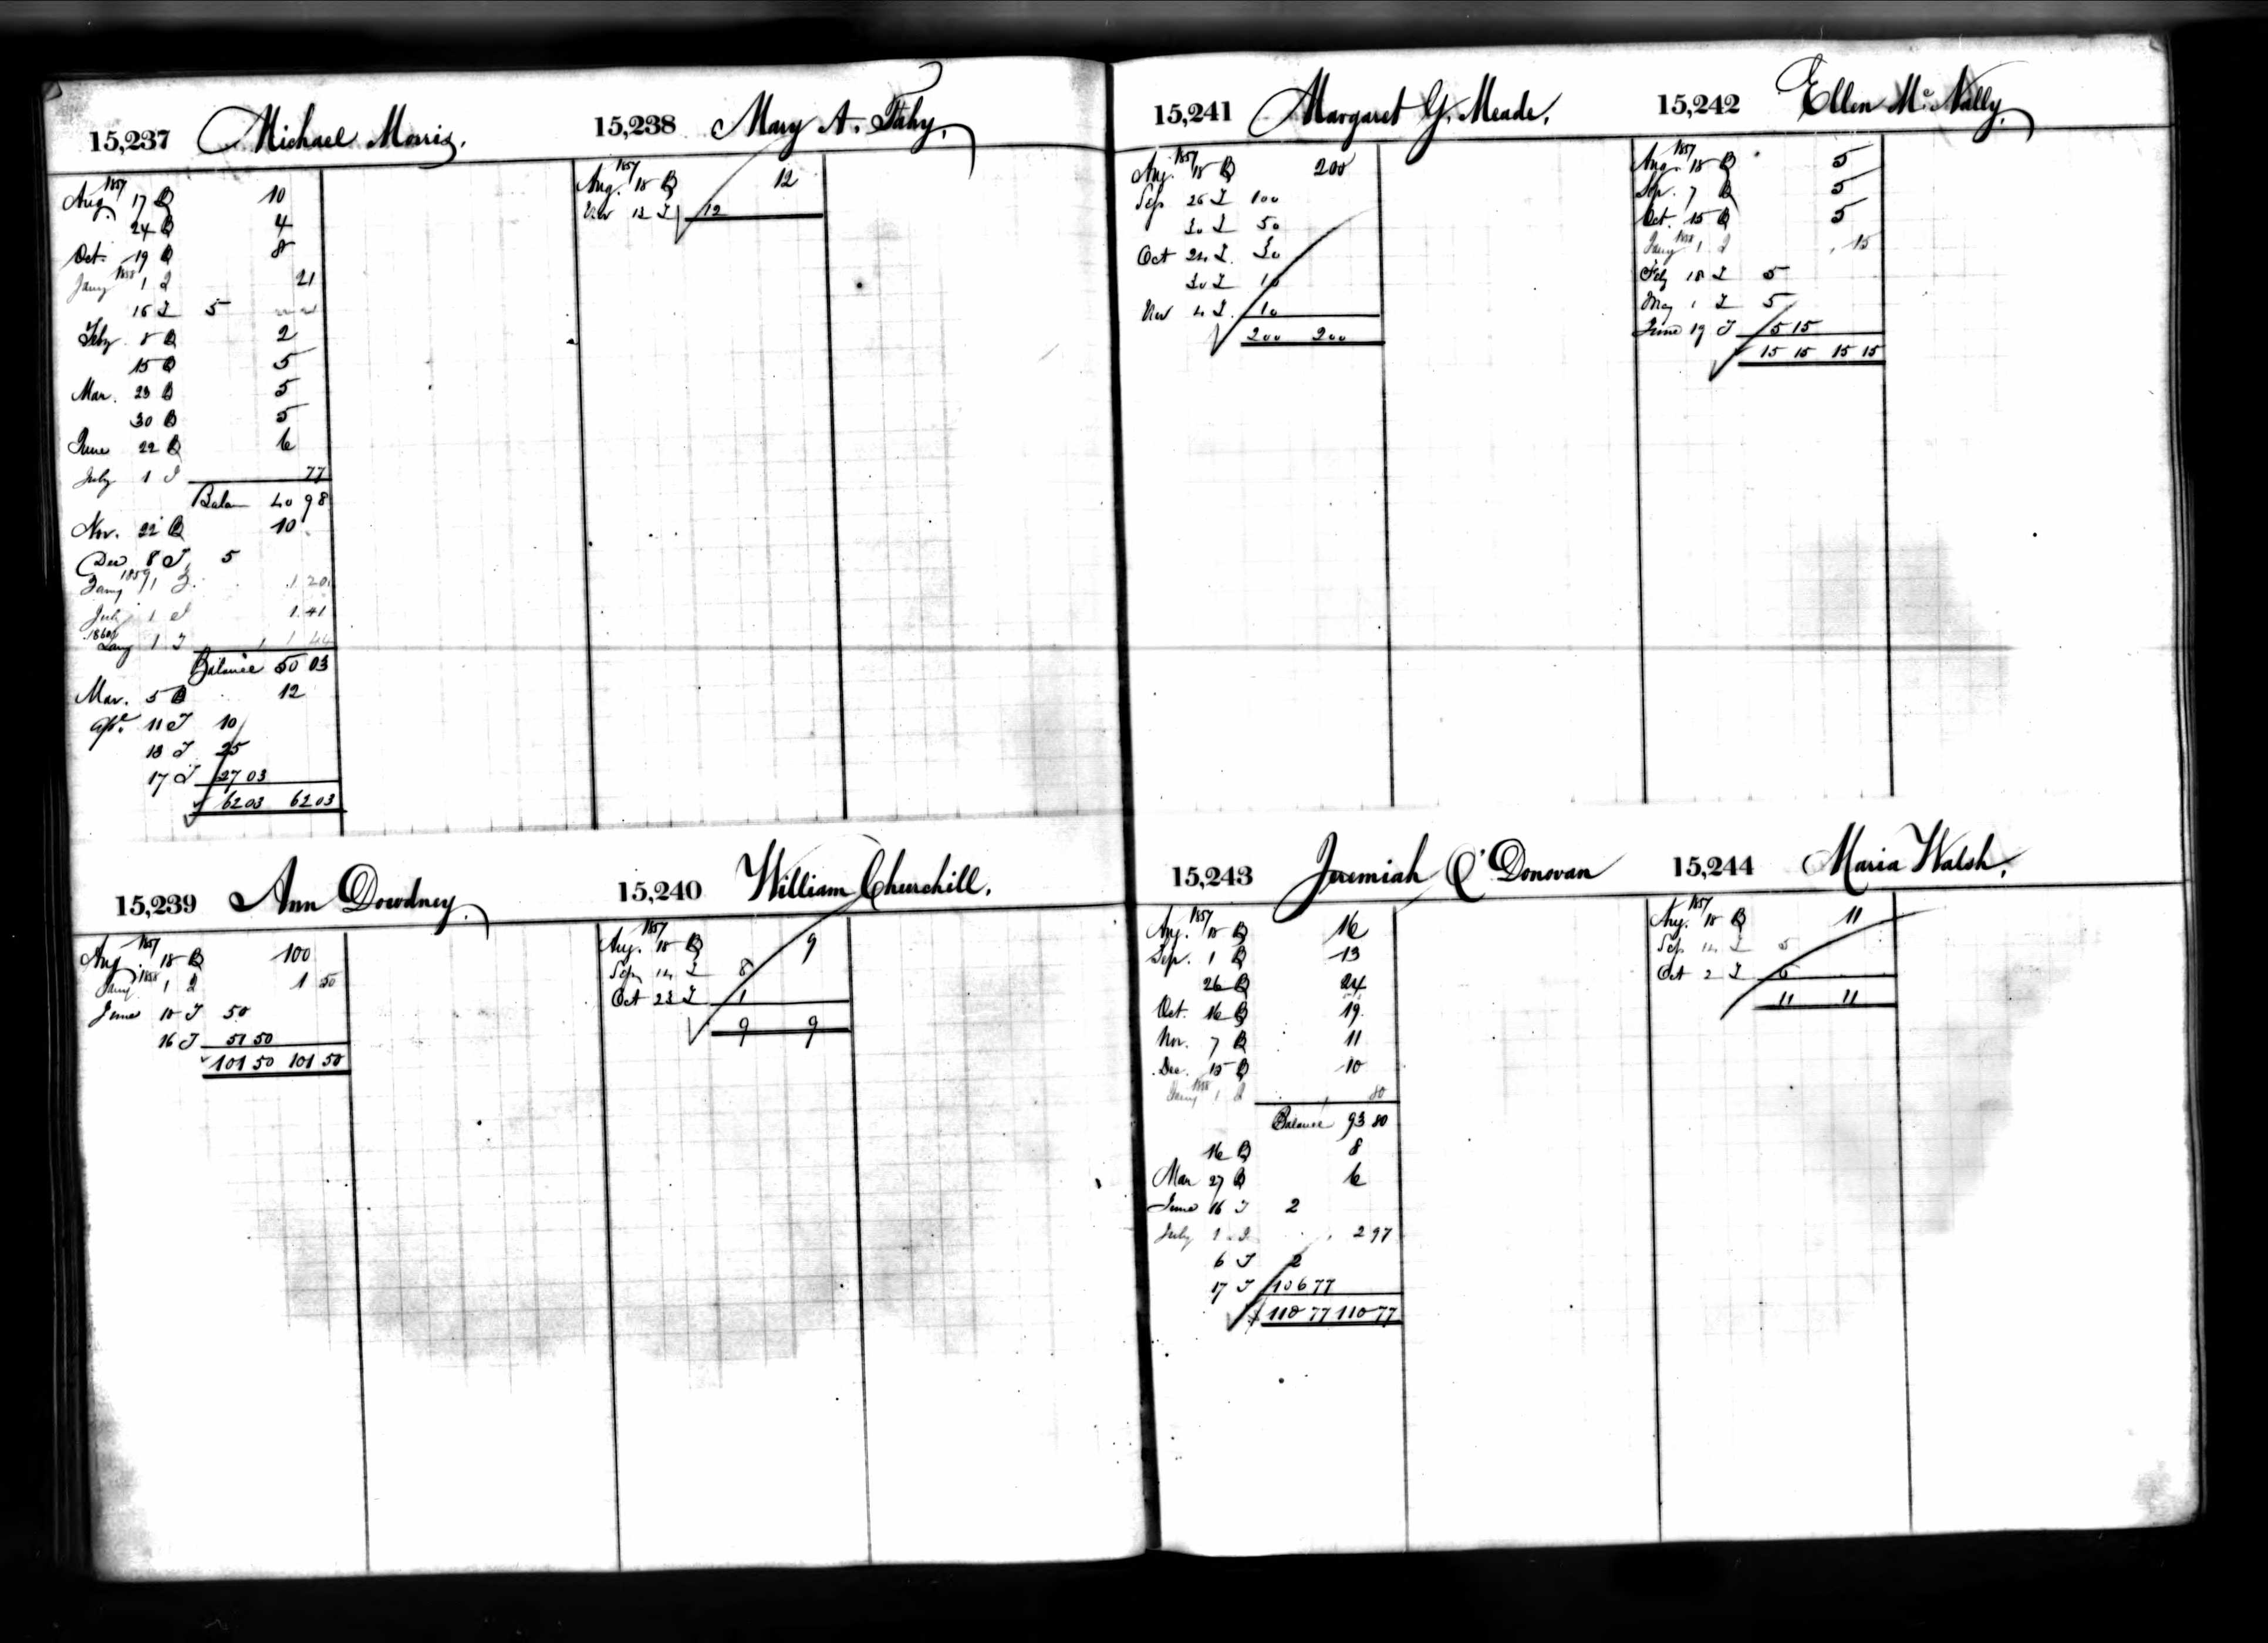 15,237 Michael Morris.
1857
Aug. 17 B 10
24 B 4
Oct. 19 B 8
Jany 1858 1 I 21
16 I 5
Feby 8 B 2
15 B 5
Mar. 23 B 5
30 B 5
June 22 B 6
July 1 I 77
Balan 40 98
Nov. 22 B 10
Dec 8 I 5
Jany 1859 1 I 1 20
July 1 I 1 41
1860
Jany 1 I 1 44
Balance 50 03
Mar. 5 B 12
Apl. 11 I 10
13 I 25
17 I 27 03
62 03 62 03
15,238 Mary A. Fahy.
1857
Aug. 18 B 12
Nov 12 I 12
15,239 Ann Dowdney.
1857
Aug 18 B 100
Jany 1858 1 I 1 50
June 10 I 50
16 I 51 50
101 50 101 50
15,240 William Churchill.
1857
Aug. 18 B 9
Sep 14 I 8
Oct 23 I 1
9 9
15,241 Margaret G. Meade.
1857
Aug. 18 B 200
Sep 26 I 100
30 I 50
Oct 24 I 30
30 I 10
Nov 4 I 10
200 200
15,242 Ellen Mc Nally.
1857
Aug. 18 B 5
Sep. 7 B 5
Oct. 15 B 5
Jany 1858 1 I 15
Feby 18 I 5
May 1 I 5
June 19 I 5 15
15 15 15 15
15,243 Jeremiah O'Donovan
1857
Aug. 18 B 16
Sep. 1 B 13
26 B 24
Oct. 16 B 19
Nov. 7 B 11
Dec. 15 B 10
Jany 1858 1 I 80
Balance 93 80
16 B 8
Mar 27 B 6
June 16 I 2
July 1 I 2 97
6 I 2
17 I 106 77
110 77 110 77
15,244 Maria Walsh.
1857
Aug. 18 B 11
Sep 14 I 5
Oct 2 I 6
11 11